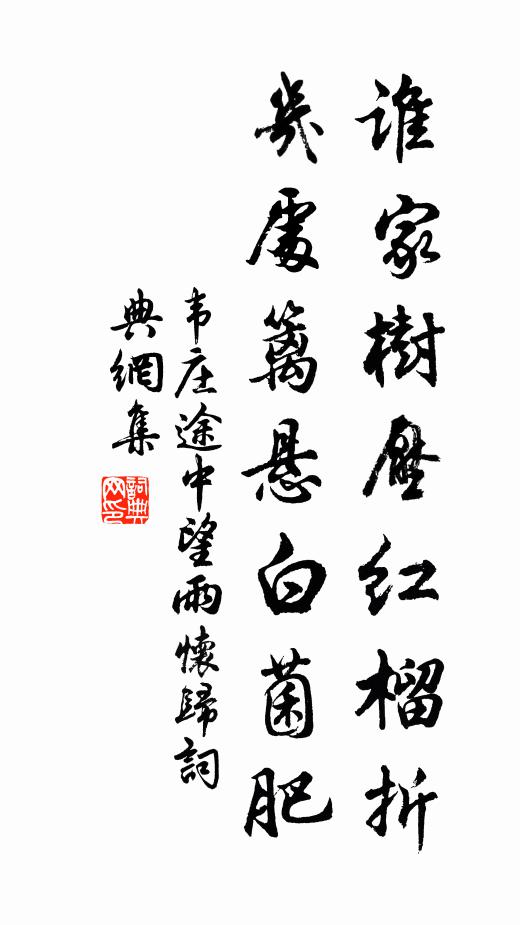 谁家樹壓红榴折
幾處籬悬白菌肥
韦庄途中望雨懷歸詞
典網集
詞典
网印